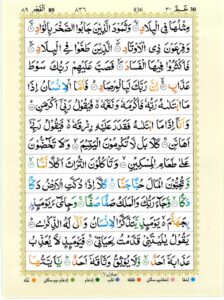 ٨٩ اَلْفَجْر 89 ٨٣٦ 836 عَمَّ ٣٠ 30
مِثْلُهَا فِي الْبِلَادِ وَثَمُوْدَ الَّذِيْنَ جَابُوا الصَّخْرَ بِالْوَادِ
وَفِرْعَوْنَ ذِي الْاَوْتَادِ الَّذِيْنَ طَغَوْا فِي الْبِلَادِ
فَاَكْثَرُوْا فِيْهَا الْفَسَادَ فَصَبَّ عَلَيْهِمْ رَبُّكَ سَوْطَ
عَذَابٍ اِنَّ رَبَّكَ لَبِالْمِرْصَادِ فَاَمَّا الْاِنْسَانُ اِذَا
مَا ابْتَلٰىهُ رَبُّهٗ فَاَكْرَمَهٗ وَنَعَّمَهٗ فَيَقُوْلُ رَبِّيْٓ اَكْرَمَنِ وَ
اَمَّآ اِذَا مَا ابْتَلٰىهُ فَقَدَرَ عَلَيْهِ رِزْقَهٗ فَيَقُوْلُ رَبِّيْٓ
اَهَانَنِ كَلَّا بَلْ لَّا تُكْرِمُوْنَ الْيَتِيْمَ وَلَا تَحٰٓضُّوْنَ عَلٰى
طَعَامِ الْمِسْكِيْنِ وَتَاْكُلُوْنَ التُّرَاثَ اَكْلًا لَّمًّا
وَّتُحِبُّوْنَ الْمَالَ حُبًّا جَمًّا كَلَّآ اِذَا دُكَّتِ الْاَرْضُ دَكًّا
دَكًّا وَّجَآءَ رَبُّكَ وَالْمَلَكُ صَفًّا صَفًّا وَجِايْٓءَ يَوْمَئِذٍۢ
بِجَهَنَّمَ يَوْمَئِذٍ يَّتَذَكَّرُ الْاِنْسَانُ وَاَنّٰى لَهُ الذِّكْرٰى
يَقُوْلُ يٰلَيْتَنِيْ قَدَّمْتُ لِحَيَاتِيْ فَيَوْمَئِذٍ لَّا يُعَذِّبُ
عَذَابَهٗٓ اَحَدٌ وَّلَا يُوْثِقُ وَثَاقَهٗٓ اَحَدٌ يٰٓاَيَّتُهَا